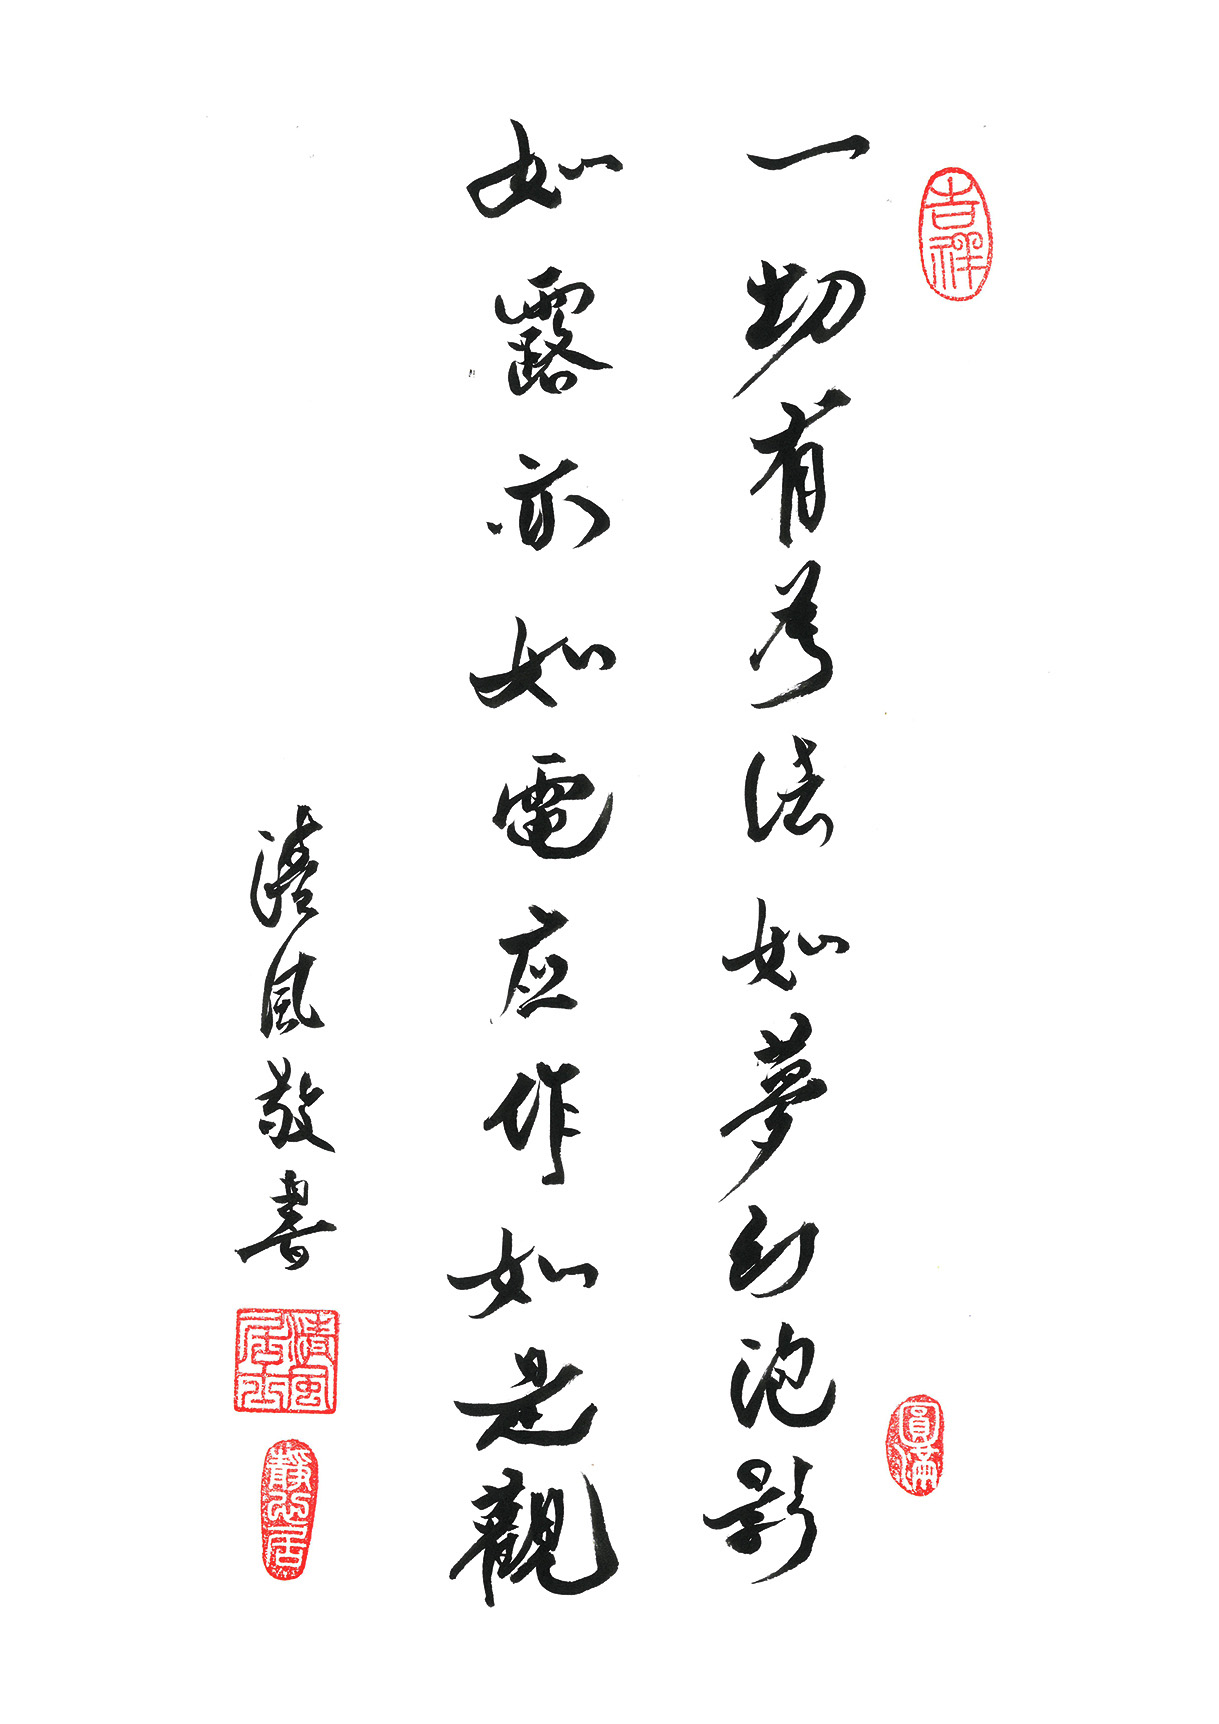 吉祥
一切有为法如夢幻泡影
如露亦如電应作如是觀
清風敬書
圓滿
清風居士
靜心居